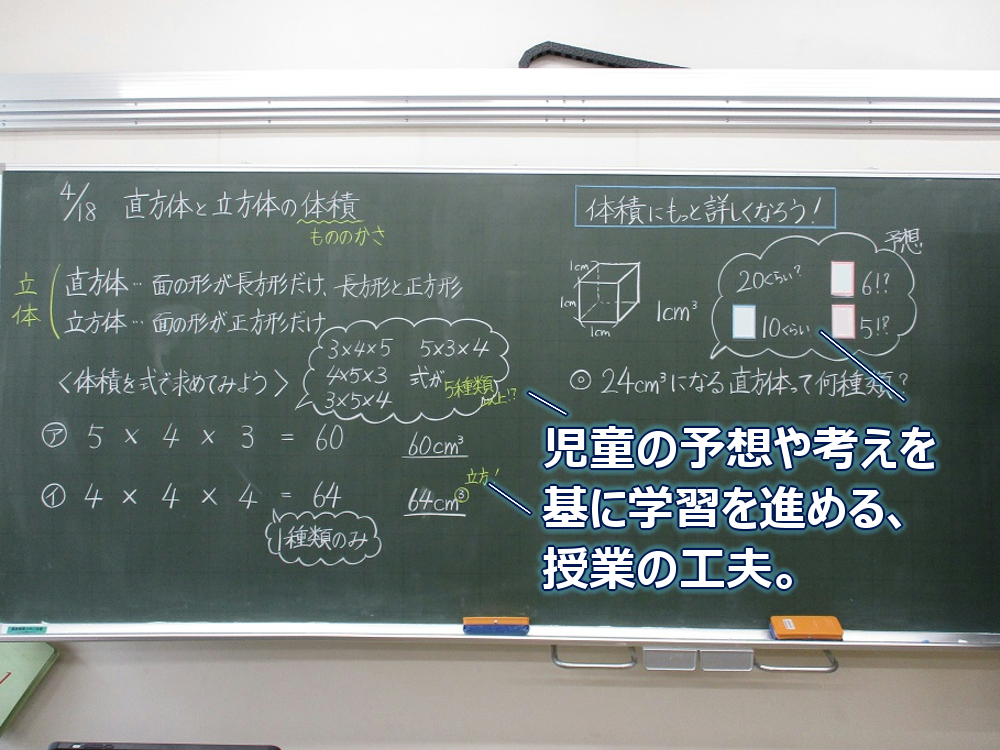 4/18 直方体と立方体の体積
もののかさ
立体
直方体…面の形が長方形だけ、長方形と正方形
立方体…面の形が正方形だけ
<体積を式で求めてみよう>
3×4×5 5×3×4
4×5×3 式が5種類以上!?
3×5×4
㋐ 5 × 4 × 3 = 60 60cm³
立方!
㋑ 4 × 4 × 4 = 64 64cm³
1種類のみ
体積にもっと詳しくなろう!
1cm
1cm
1cm
1cm³
予想
20くらい? 6!?
10くらい 5!?
◎ 24cm³になる直方体って何種類?
児童の予想や考えを
基に学習を進める、
授業の工夫。